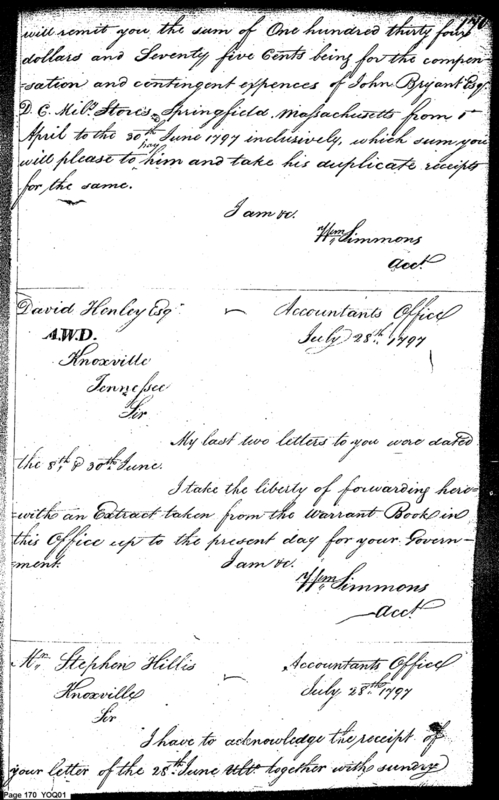 170
will remit you the sum of One hundred thirty four
dollars and Seventy five Cents being for the compen-
sation and contingent expences of John Bryant Esqr
D. C. Mily. Stores Springfield Massachusetts from 1st
April to the 30th June 1797 inclusively, which sum you
will please to pay him and take his duplicate receipts
for the same.
I am &c.
Wm Simmons
Acct.
David Henley Esqr Accountants Office
A.W.D. July 28th. 1797
Knoxville
Tennessee
Sir
My last two letters to you were dated
the 8th. & 30th. June.
I take the liberty of forwarding here-
-with an Extract taken from the Warrant Book in
this Office up to the present day for your Govern-
ment. I am &c.
Wm Simmons
Acct.
Mr. Stephen Hillis Accountants Office
Knoxville July 28th. 1797
Sir
I have to acknowledge the receipt of
your letter of the 28th. June Ulto. together with sundry
Page 170 YOQ01